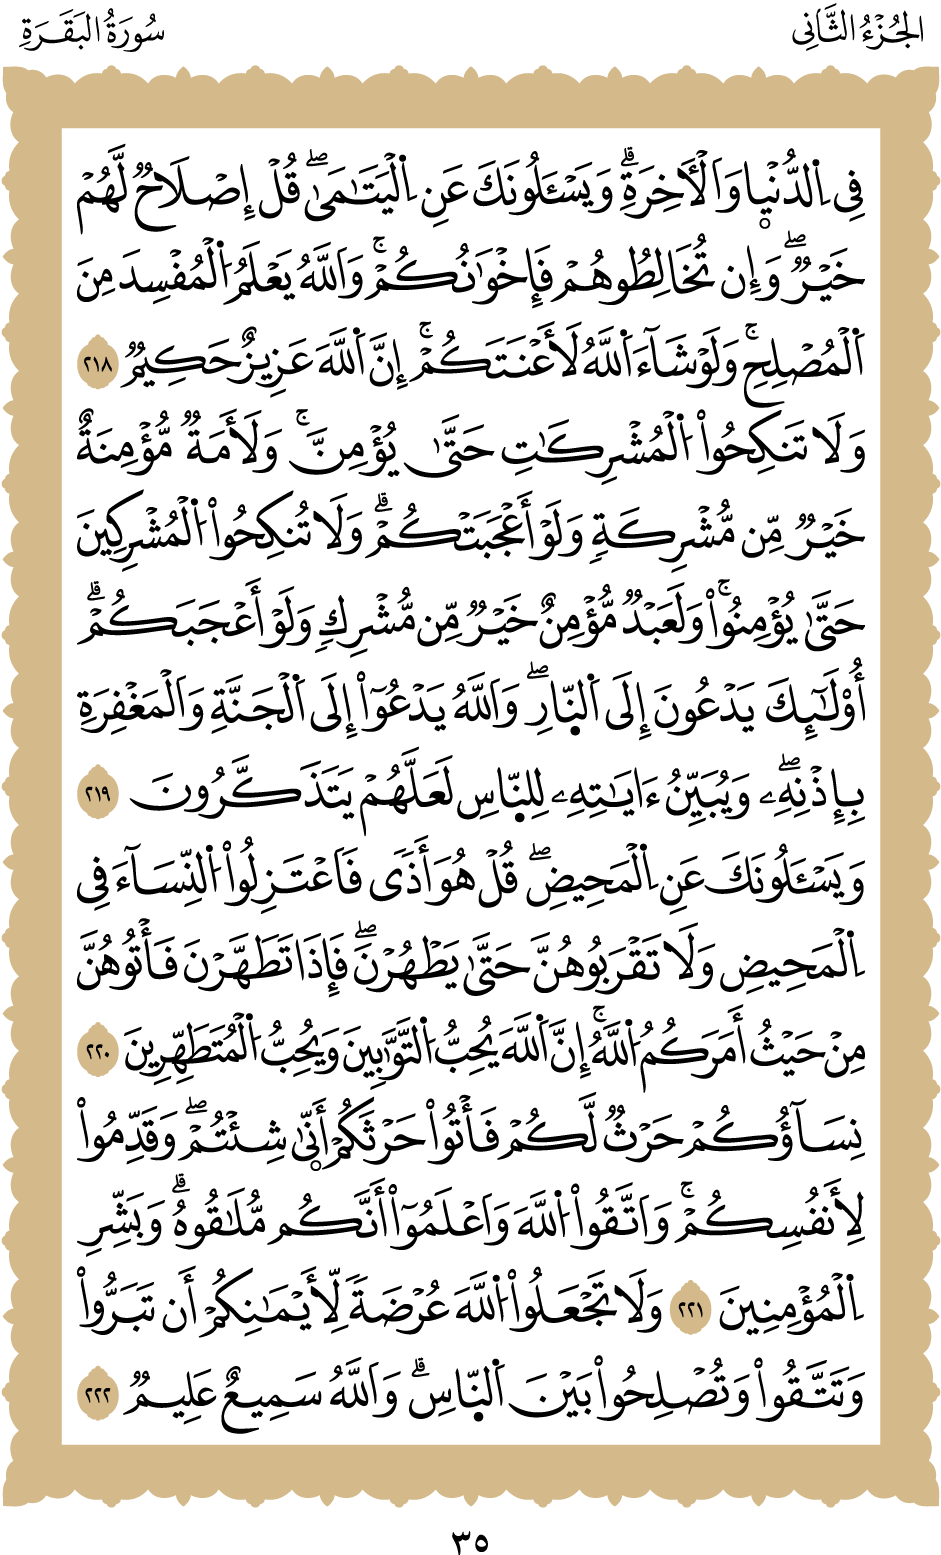 الجُزْءُ الثَّانِى
سُورَةُ البَقَرَةِ
فِى اِ۬لدُّنْي۪ا وَالَاخِرَةِۗ وَيَسْـَٔلُونَكَ عَنِ اِ۬لْيَتَٰمَىٰۖ قُلْ إِصْلَاحٌ لَّهُمْ
خَيْرٌۖ وَإِن تُخَالِطُوهُمْ فَإِخْوَٰنُكُمْۚ وَاَللَّهُ يَعْلَمُ اُ۬لْمُفْسِدَ مِنَ
اَ۬لْمُصْلِحِۚ وَلَوْ شَآءَ اَ۬للَّهُ لَأَعْنَتَكُمْۚ إِنَّ اَ۬للَّهَ عَزِيزٌ حَكِيمٌ ٢١٨
وَلَا تَنكِحُواْ اُ۬لْمُشْرِكَٰتِ حَتَّىٰ يُؤْمِنَّۚ وَلَأَمَةٌ مُّؤْمِنَةٌ
خَيْرٌ مِّن مُّشْرِكَةٍ وَلَوْ أَعْجَبَتْكُمْۗ وَلَا تُنكِحُواْ اُ۬لْمُشْرِكِينَ
حَتَّىٰ يُؤْمِنُواْۚ وَلَعَبْدٌ مُّؤْمِنٌ خَيْرٌ مِّن مُّشْرِكٍ وَلَوْ أَعْجَبَكُمْۗ
أُوْلَٰٓئِكَ يَدْعُونَ إِلَى اَ۬لنّ۪ارِۖ وَاَللَّهُ يَدْعُوٓاْ إِلَى اَ۬لْجَنَّةِ وَالْمَغْفِرَةِ
بِإِذْنِهِۦۖ وَيُبَيِّنُ ءَايَٰتِهِۦ لِلنّ۪اسِ لَعَلَّهُمْ يَتَذَكَّرُونَ ٢١٩
وَيَسْـَٔلُونَكَ عَنِ اِ۬لْمَحِيضِۖ قُلْ هُوَ أَذًى فَاعْتَزِلُواْ اُ۬لنِّسَآءَ فِى
اِ۬لْمَحِيضِ وَلَا تَقْرَبُوهُنَّ حَتَّىٰ يَطْهُرْنَۖ فَإِذَا تَطَهَّرْنَ فَأْتُوهُنَّ
مِنْ حَيْثُ أَمَرَكُمُ اُ۬للَّهُۚ إِنَّ اَ۬للَّهَ يُحِبُّ اُ۬لتَّوَّٰبِينَ وَيُحِبُّ اُ۬لْمُتَطَهِّرِينَ ٢٢٠
نِسَآؤُكُمْ حَرْثٌ لَّكُمْ فَأْتُواْ حَرْثَكُمْ أَنّ۪ىٰ شِئْتُمْۖ وَقَدِّمُواْ
لِأَنفُسِكُمْۚ وَاتَّقُواْ اُ۬للَّهَ وَاعْلَمُوٓاْ أَنَّكُم مُّلَٰقُوهُۗ وَبَشِّرِ
اِ۬لْمُؤْمِنِينَ ٢٢١ وَلَا تَجْعَلُواْ اُ۬للَّهَ عُرْضَةً لِّأَيْمَٰنِكُمْ أَن تَبَرُّواْ
وَتَتَّقُواْ وَتُصْلِحُواْ بَيْنَ اَ۬لنّ۪اسِۗ وَاَللَّهُ سَمِيعٌ عَلِيمٌ ٢٢٢
٣٥